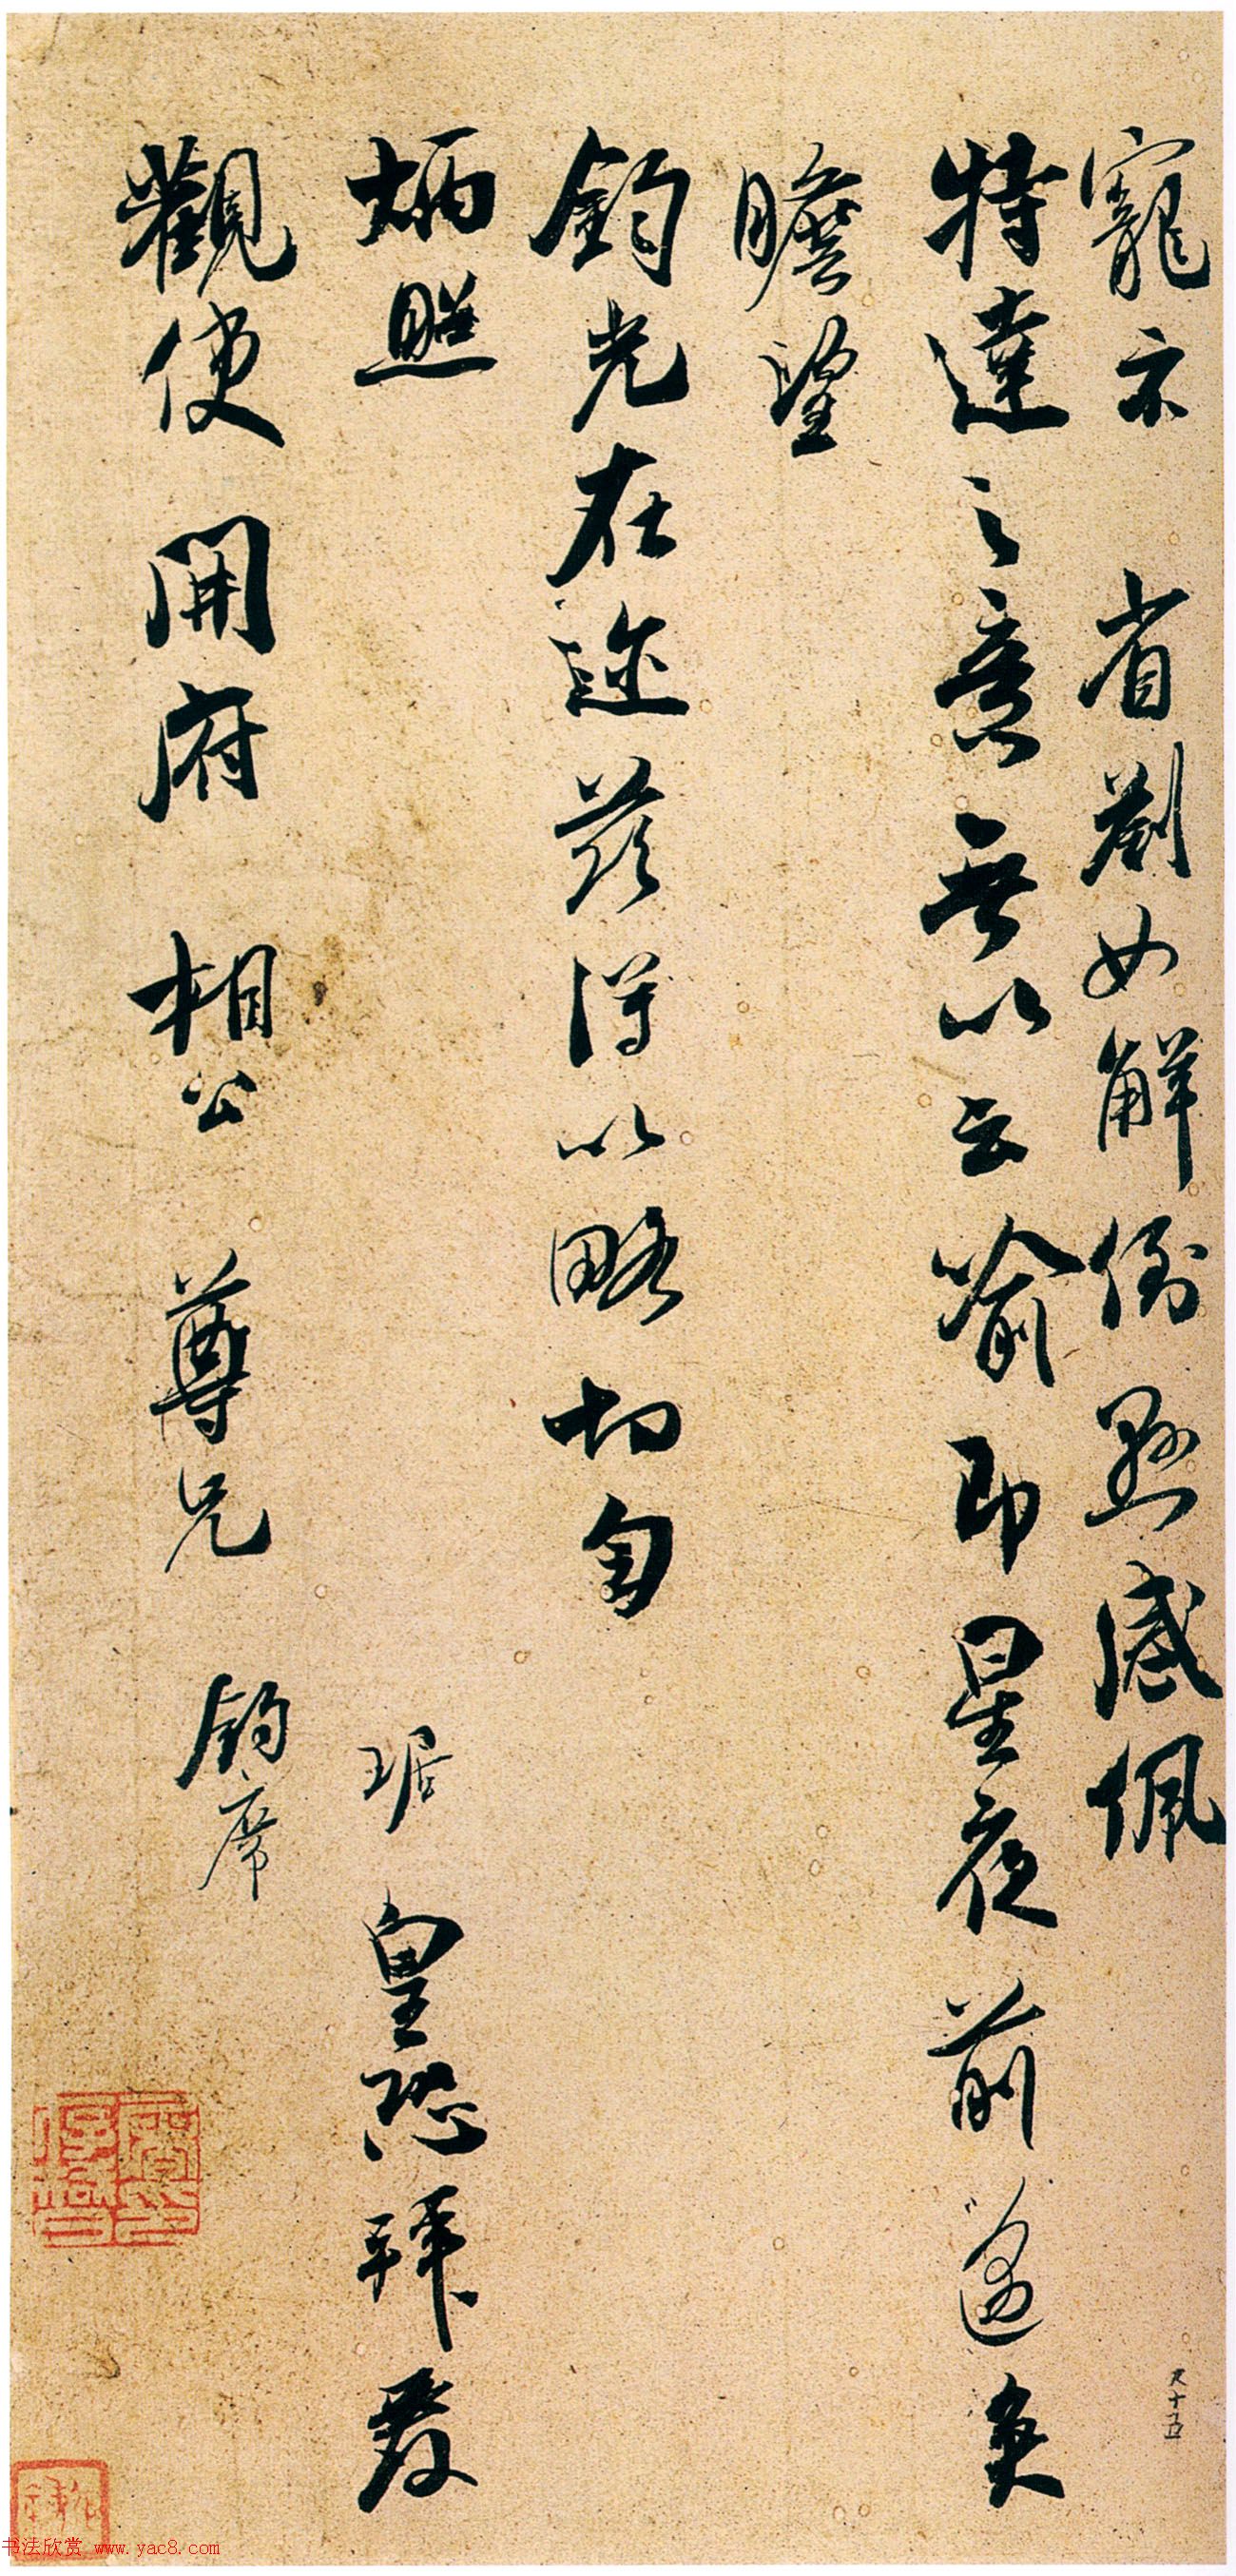 寵示 省劄如解倒懸感佩
特達之意無以云喻即星夜前邁矣
瞻望
鈞光在邇茲得以略切匆
炳照
琚 皇恐拜覆
觀使開府相公尊兄 鈞席
尺十五
书法欣赏 www.yac8.com